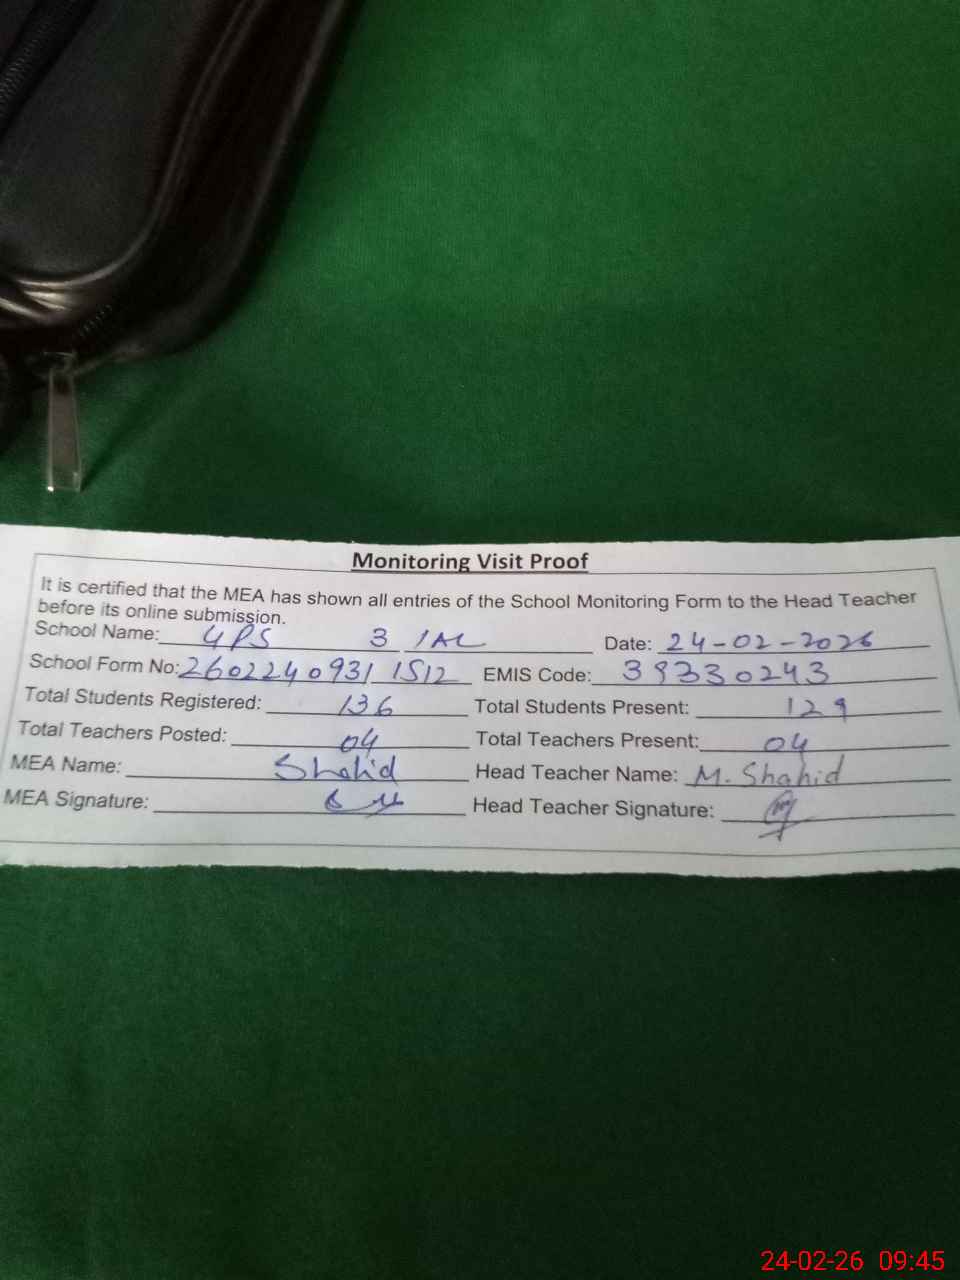 Monitoring Visit Proof
It is certified that the MEA has shown all entries of the School Monitoring Form to the Head Teacher
before its online submission.
School Name: GPS 3 1AL Date: 24-02-2026
School Form No: 2602240931 1512 EMIS Code: 39330243
Total Students Registered: 136 Total Students Present: 129
Total Teachers Posted: 04 Total Teachers Present: 04
MEA Name: Shahid Head Teacher Name: M. Shahid
MEA Signature: Head Teacher Signature:
24-02-26 09:45